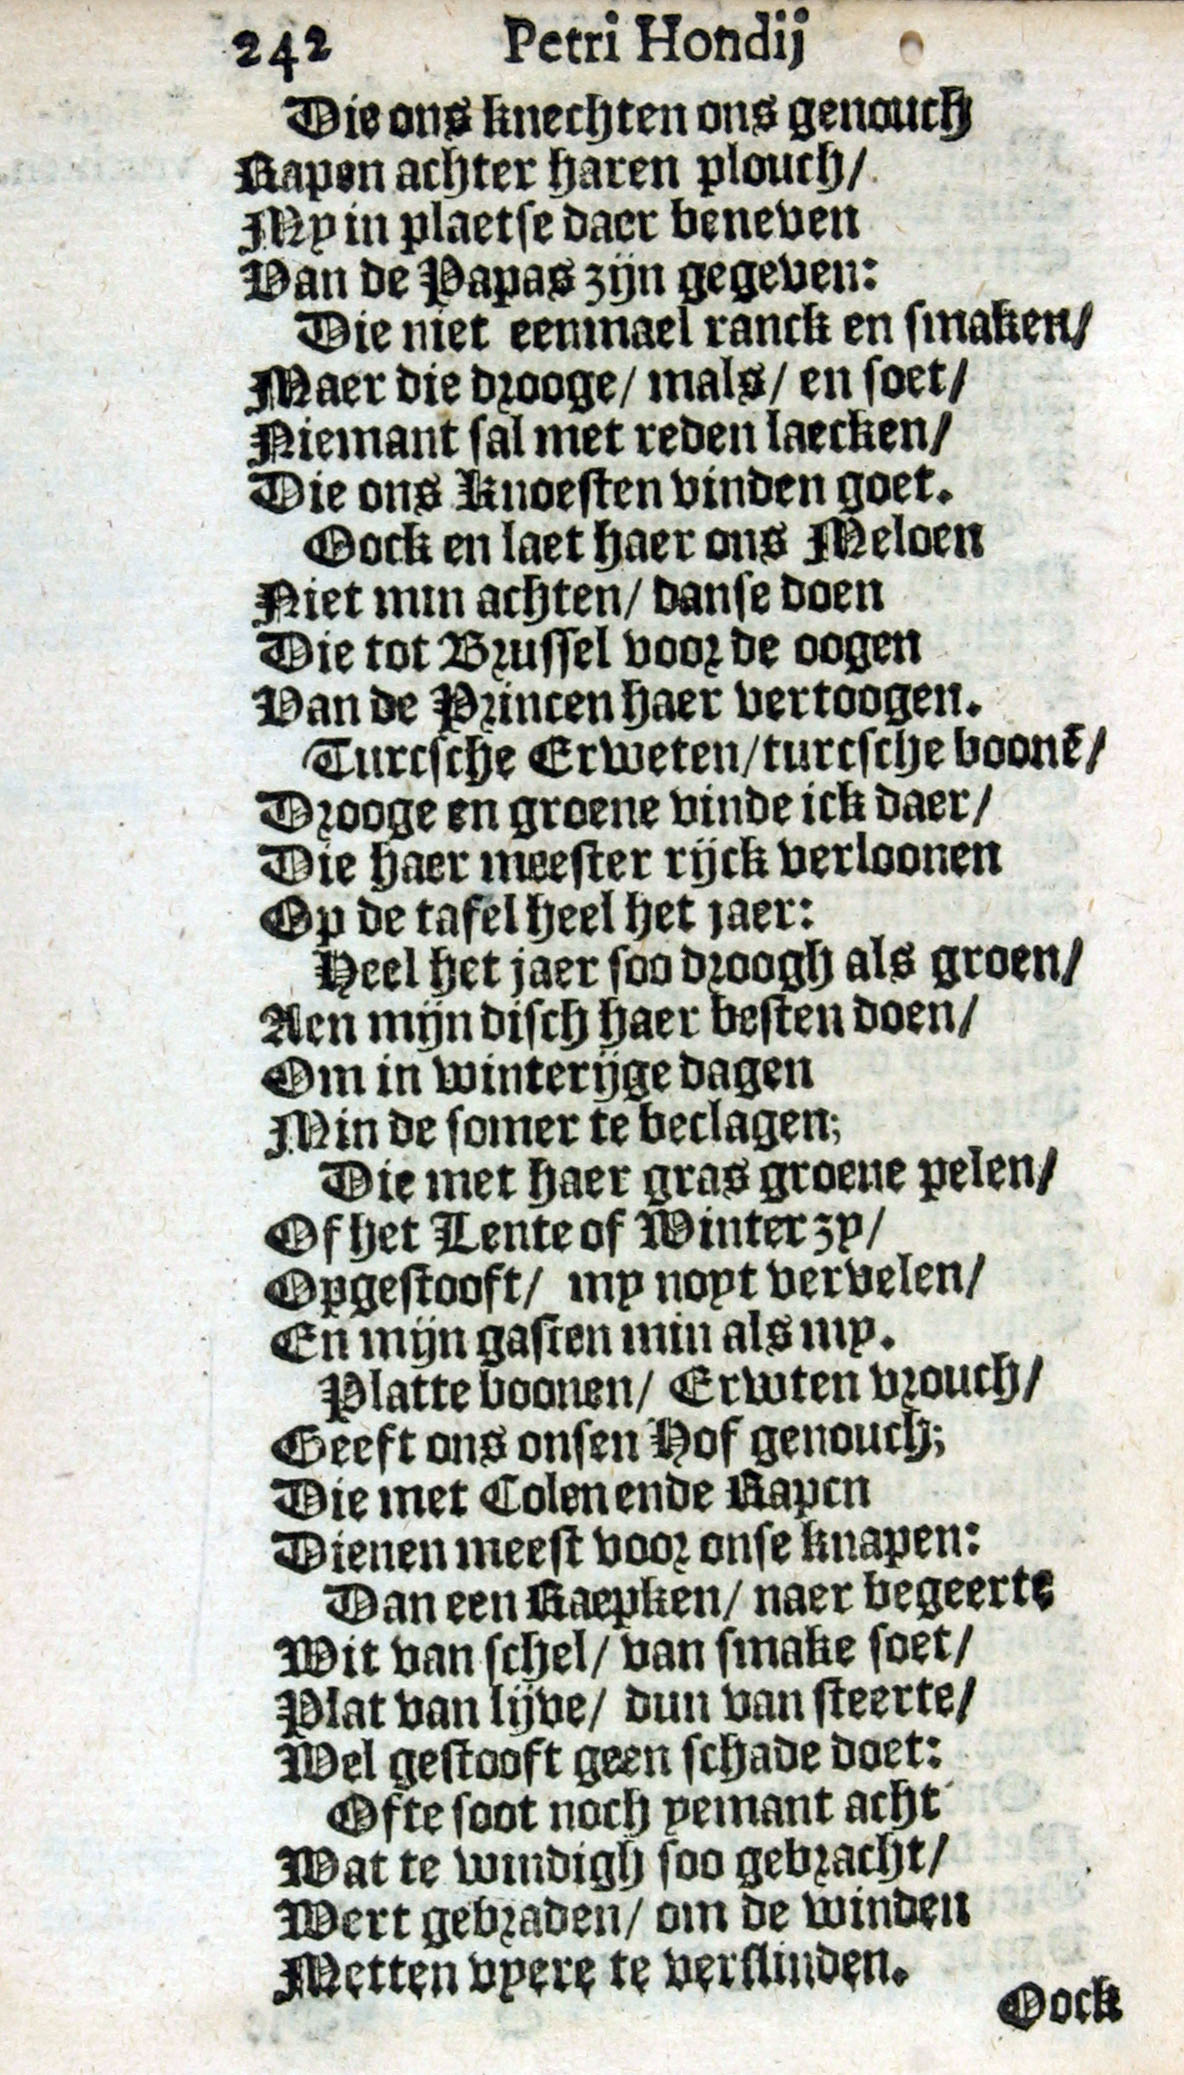 242 Petri Hondij
Die ons knechten ons genouch
Rapen achter haren plouch/
My in plaetse daer beneven
Van de Papas zijn gegeven:
Die niet eenmael ranck en smaken/
Maer die drooge/ mals/ en soet/
Niemant sal met reden laecken/
Die ons Knoesten vinden goet.
Oock en laet haer ons Meloen
Niet min achten/ danse doen
Die tot Brussel voor de oogen
Van de Princen haer vertoogen.
Turcsche Erweten/turcsche boonē/
Drooge en groene vinde ick daer/
Die haer meester rijck verloonen
Op de tafel heel het jaer:
Heel het jaer soo droogh als groen/
Aen mijn disch haer besten doen/
Om in winterijge dagen
Min de somer te beclagen;
Die met haer gras groene pelen/
Of het Lente of Winter zy/
Opgestooft/ my noyt vervelen/
En mijn gasten min als my.
Platte boonen/ Erwten vrouch/
Geeft ons onsen Hof genouch;
Die met Colen ende Rapen
Dienen meest voor onse knapen:
Dan een Raepken/ naer begeerte
Wit van schel/ van smake soet/
Plat van lijve/ dun van steerte/
Wel gestooft geen schade doet:
Ofte soot noch yemant acht
Wat te windigh soo gebracht/
Wert gebraden/ om de winden
Metten vyere te verslinden.
Oock